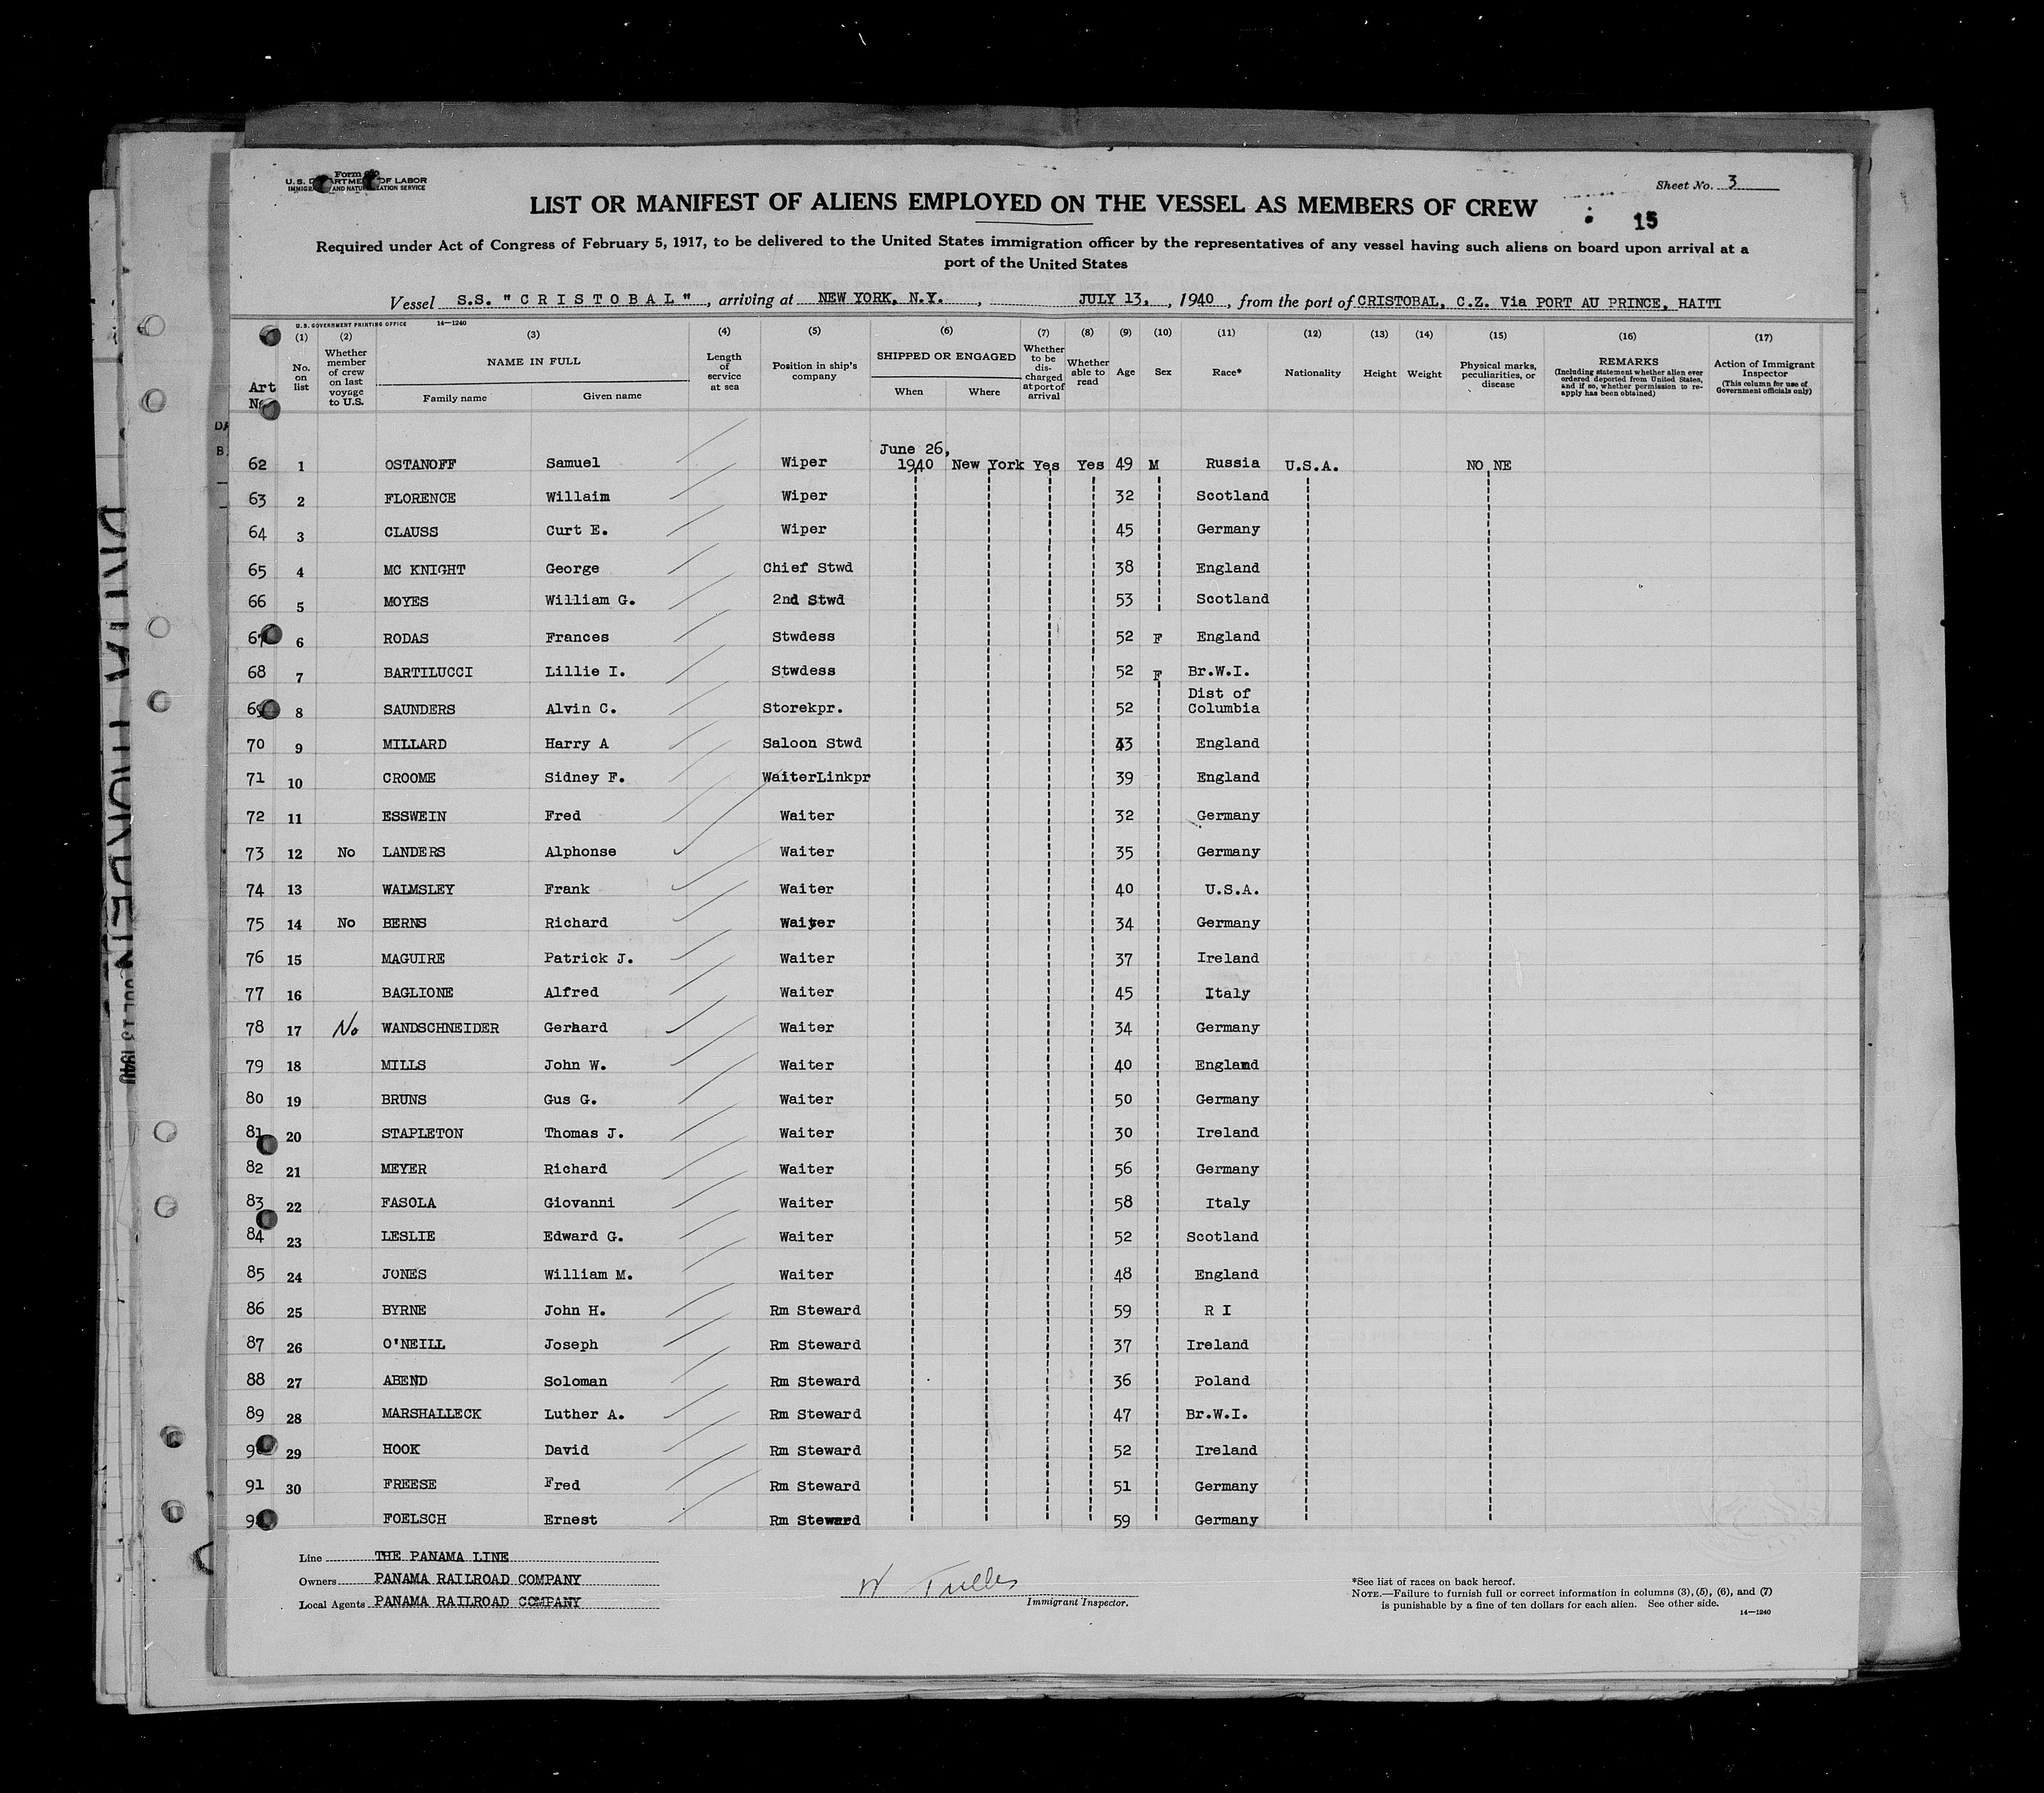 Form
U.S. DEPARTMENT OF LABOR
IMMIGRATION AND NATURALIZATION SERVICE
Sheet No. 3
LIST OR MANIFEST OF ALIENS EMPLOYED ON THE VESSEL AS MEMBERS OF CREW
15
Required under Act of Congress of February 5, 1917, to be delivered to the United States immigration officer by the representatives of any vessel having such aliens on board upon arrival at a
port of the United States
Vessel S.S. "CRISTOBAL", arriving at NEW YORK, N.Y., JULY 13, 1940, from the port of CRISTOBAL, C.Z. Via PORT AU PRINCE, HAITI
U.S. GOVERNMENT PRINTING OFFICE 14—1240
Art No. (1) No. on list (2) Whether member of crew on last voyage to U.S. (3) NAME IN FULL Family name Given name (4) Length of service at sea (5) Position in ship's company (6) SHIPPED OR ENGAGED When Where (7) Whether to be discharged at port of arrival (8) Whether able to read (9) Age (10) Sex (11) Race* (12) Nationality (13) Height (14) Weight (15) Physical marks, peculiarities, or disease (16) REMARKS (Including statement whether alien ever ordered deported from United States, and if so, whether permission to re-apply has been obtained) (17) Action of Immigrant Inspector (This column for use of Government officials only)
62 1 OSTANOFF Samuel Wiper June 26, 1940 New York Yes Yes 49 M Russia U.S.A. NO NE
63 2 FLORENCE Willaim Wiper 32 Scotland
64 3 CLAUSS Curt E. Wiper 45 Germany
65 4 MC KNIGHT George Chief Stwd 38 England
66 5 MOYES William G. 2nd Stwd 53 Scotland
67 6 RODAS Frances Stwdess 52 F England
68 7 BARTILUCCI Lillie I. Stwdess 52 F Br.W.I.
69 8 SAUNDERS Alvin C. Storekpr. 52 Dist of Columbia
70 9 MILLARD Harry A Saloon Stwd 43 England
71 10 CROOME Sidney F. WaiterLinkpr 39 England
72 11 ESSWEIN Fred Waiter 32 Germany
73 12 No LANDERS Alphonse Waiter 35 Germany
74 13 WALMSLEY Frank Waiter 40 U.S.A.
75 14 No BERNS Richard Waiter 34 Germany
76 15 MAGUIRE Patrick J. Waiter 37 Ireland
77 16 BAGLIONE Alfred Waiter 45 Italy
78 17 No WANDSCHNEIDER Gerhard Waiter 34 Germany
79 18 MILLS John W. Waiter 40 England
80 19 BRUNS Gus G. Waiter 50 Germany
81 20 STAPLETON Thomas J. Waiter 30 Ireland
82 21 MEYER Richard Waiter 56 Germany
83 22 FASOLA Giovanni Waiter 58 Italy
84 23 LESLIE Edward G. Waiter 52 Scotland
85 24 JONES William M. Waiter 48 England
86 25 BYRNE John H. Rm Steward 59 R I
87 26 O'NEILL Joseph Rm Steward 37 Ireland
88 27 ABEND Soloman Rm Steward 36 Poland
89 28 MARSHALLECK Luther A. Rm Steward 47 Br.W.I.
9 29 HOOK David Rm Steward 52 Ireland
91 30 FREESE Fred Rm Steward 51 Germany
9 FOELSCH Ernest Rm Steward 59 Germany
Line THE PANAMA LINE
Owners PANAMA RAILROAD COMPANY
Local Agents PANAMA RAILROAD COMPANY
Immigrant Inspector.
*See list of races on back hereof.
NOTE.—Failure to furnish full or correct information in columns (3), (5), (6), and (7)
is punishable by a fine of ten dollars for each alien. See other side.
14—1240